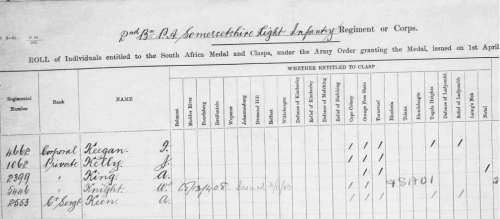 2nd Bn P.A. Somersetshire Light Infantry Regiment or Corps.
ROLL of Individuals entitled to the South Africa Medal and Clasps, under the Army Order granting the Medal, issued on 1st April
WHETHER ENTITLED TO CLASP
Regimental Number Rank NAME Belmont Modder River Paardeberg Dreifontein Wepener Johannesburg Diamond Hill Belfast Wittebergen Defence of Kimberley Relief of Kimberley Defence of Mafeking Relief of Mafeking Cape Colony Orange Free State Transvaal Rhodesia Talana Elandslaagte Tugela Heights Defence of Ladysmith Relief of Ladysmith Laing's Nek Total
4668 Corporal Keegan. J. / / / / /
1062 Private Kelly. J. / / /
2399 " King. A. / / /
5446 " Knight. W.
2553 Cr Sergt Keen A. / / / / /